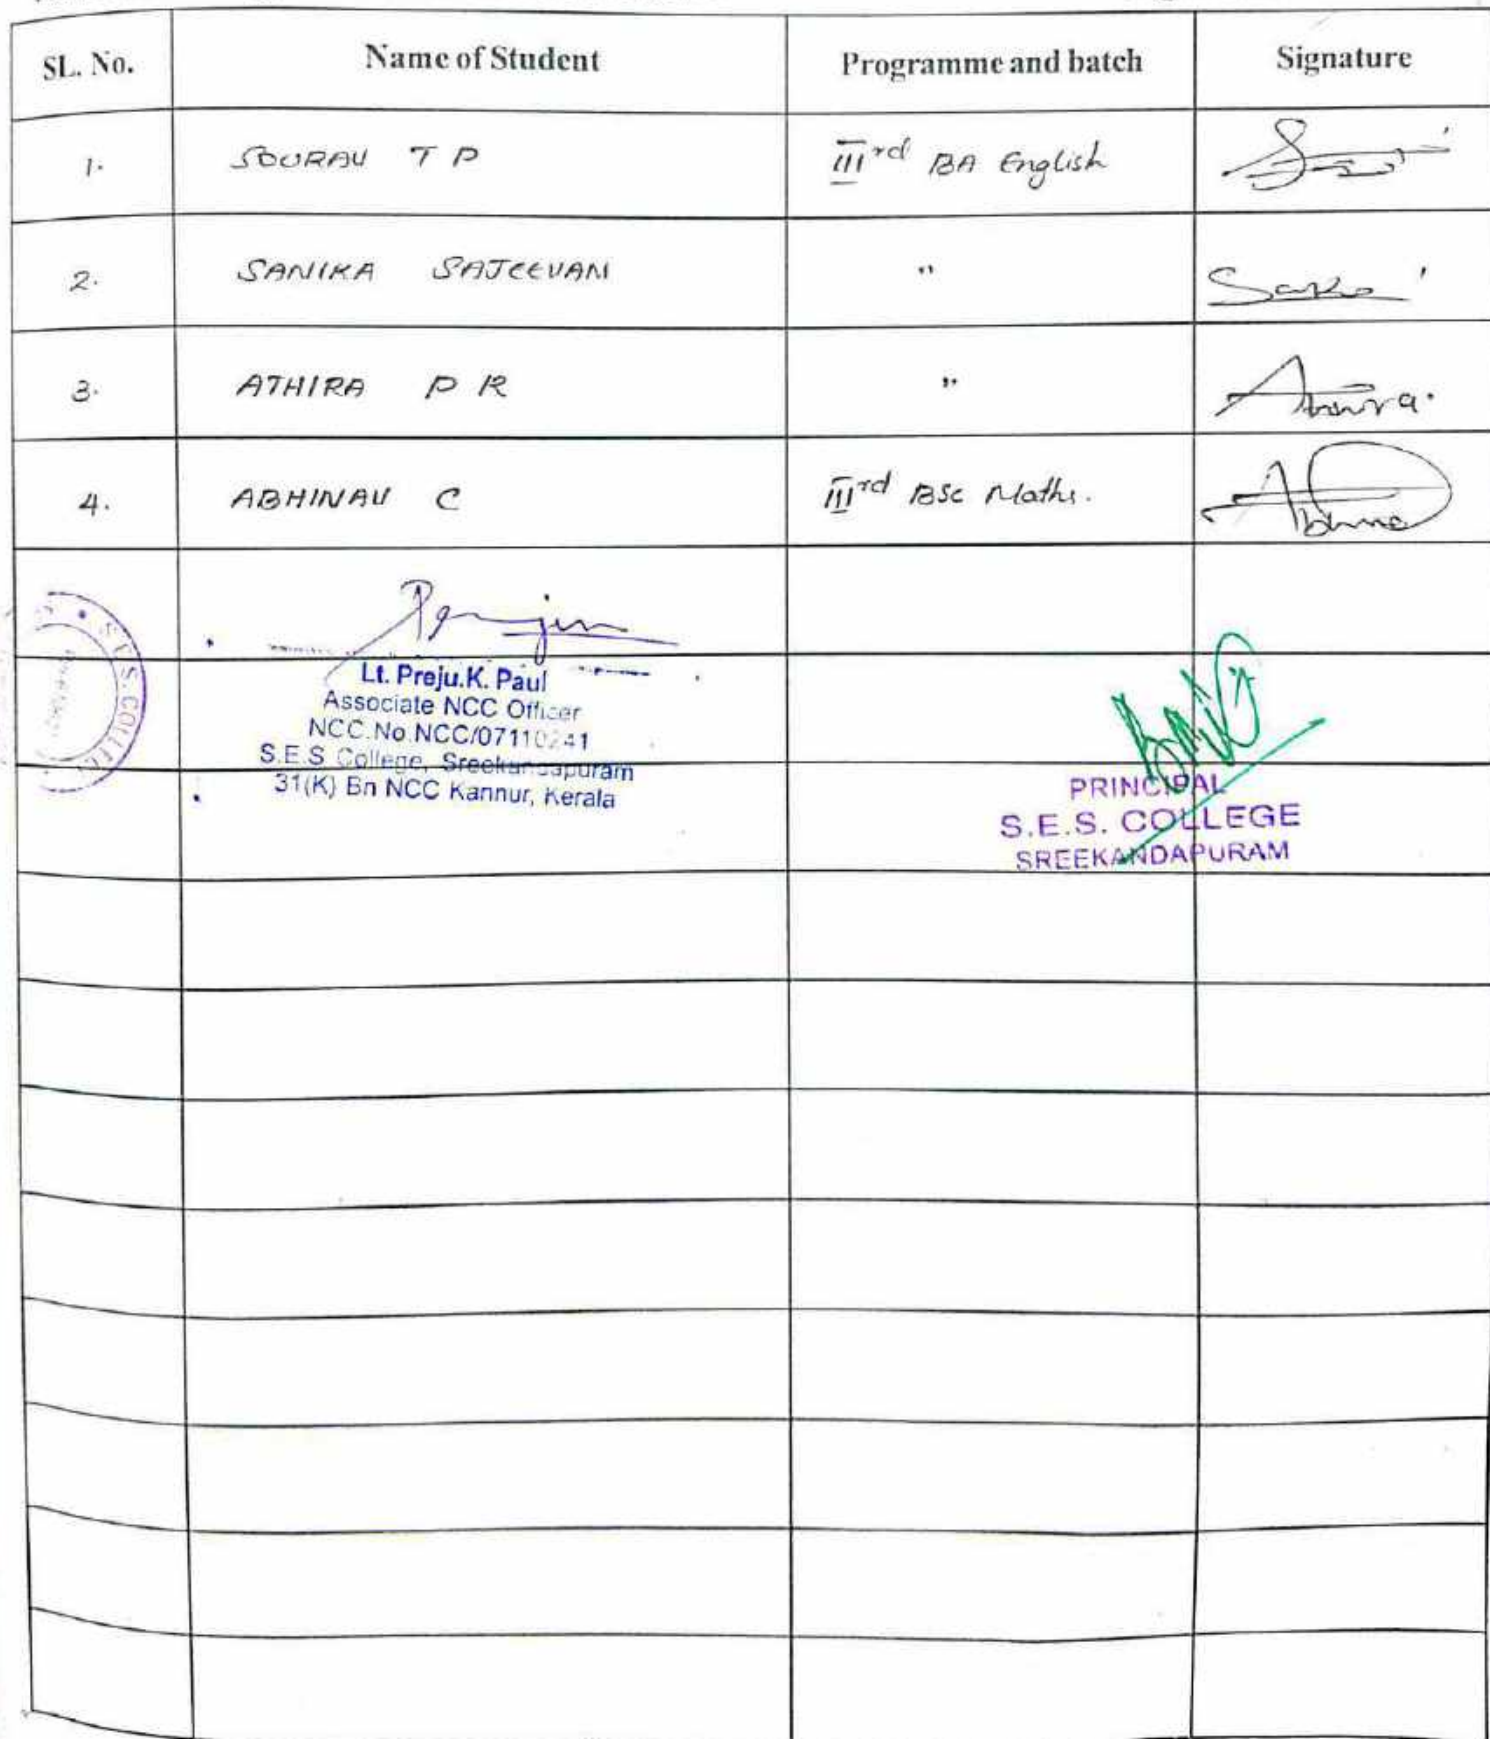 SL. No. Name of Student Programme and batch Signature
1. SOURAV T P IIIrd BA English
2. SANIKA SAJEEVAN "
3. ATHIRA P R " Athira.
4. ABHINAV C IIIrd BSc Maths. Abhinav
S.E.S. COLLEGE
Lt. Preju.K. Paul
Associate NCC Officer
NCC.No.NCC/07110241
S.E.S College, Sreekandapuram
31(K) Bn NCC Kannur, Kerala
PRINCIPAL
S.E.S. COLLEGE
SREEKANDAPURAM